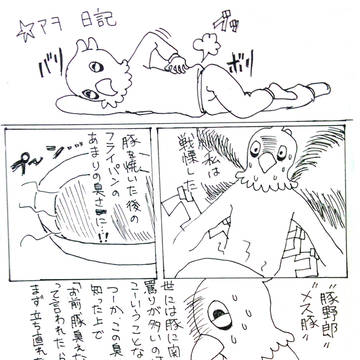 ☆アヲ日記
バリ
ボリ
私は
戦慄した
豚を焼いた後の
フライパンの
あまりの臭さに…!!
ぷ〜ん…
世には豚に関
罵りが多いので
こーいうことな
知った上で
つーか、この臭
「お前、豚臭えな
って言われたら
まず立ち直れ
"豚野郎"
"メス豚"